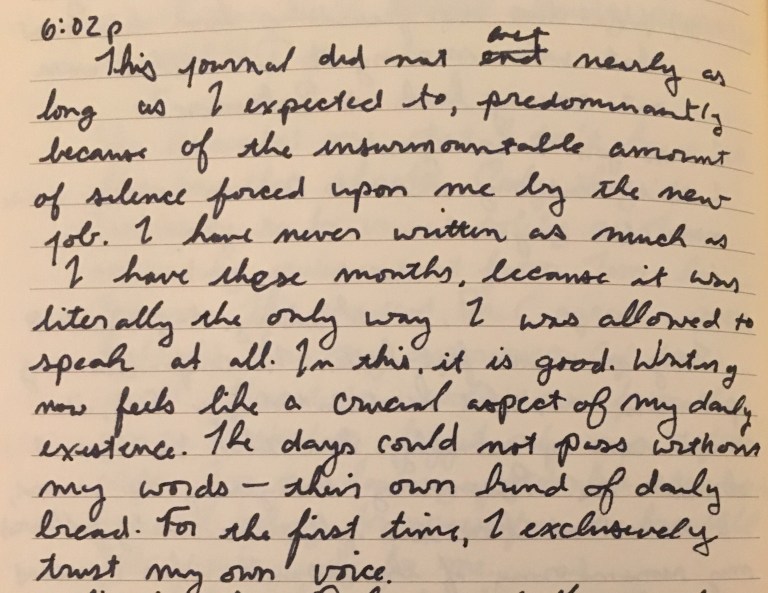 6:02p
This journal did not end nearly as
long as I expected to, predominantly
because of the insurmountable amount
of silence forced upon me by the new
job. I have never written as much as
I have these months, because it was
literally the only way I was allowed to
speak at all. In this, it is good. Writing
now feels like a crucial aspect of my daily
existence. The days could not pass without
my words — their own kind of daily
bread. For the first time, I exclusively
trust my own voice.